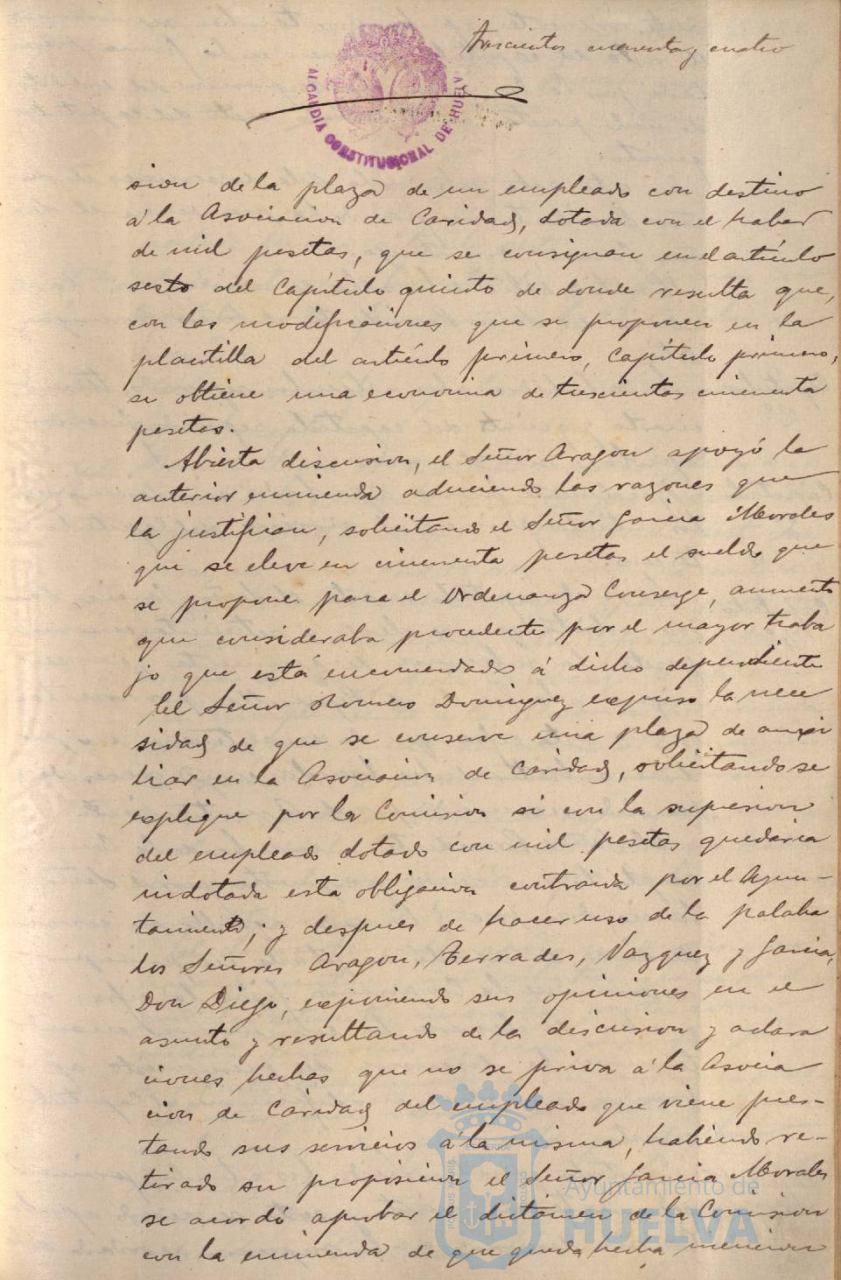 Trescientos cuarenta y cuatro
ALCALDIA CONSTITUCIONAL DE HUELVA
sion de la plaza de un empleado con destino
á la Asociacion de Caridad, dotada con el haber
de mil pesetas, que se consignan en el artículo
sesto del Capítulo quinto de donde resulta que,
con las modificaciones que se proponen en la
plantilla del artículo primero, Capítulo primero,
se obtiene una economia de trescientas cincuenta
pesetas.
Abierta discusion, el Señor Aragon apoyó la
anterior enmienda aduciendo las razones que
la justifican, solicitando el Señor Garcia Morales
que se eleve en cincuenta pesetas el sueldo que
se propone para el Ordenanza Conserge, aumento
que consideraba procedente por el mayor traba
jo que está encomendado á dicho dependiente
El Señor Romero Dominguez expuso la nece
sidad de que se conserve una plaza de auxi
liar en la Asociacion de Caridad, solicitando se
explique por la Comision si con la supresion
del empleado dotado con mil pesetas quedaria
indotada esta obligacion contraida por el Ayun-
tamiento; y despues de hacer uso de la palabra
los Señores Aragon, Terrades, Vazquez y Garcia,
Don Diego, exponiendo sus opiniones en el
asunto y resultando de la discusion y aclara
ciones hechas que no se priva á la Asocia
cion de Caridad del empleado que viene pres-
tando sus servicios á la misma, habiendo re-
tirado su proposicion el Señor Garcia Morales
se acordó aprobar el dictamen de la Comision
con la enmienda de que queda hecha mencion
Ayuntamiento de
HUELVA